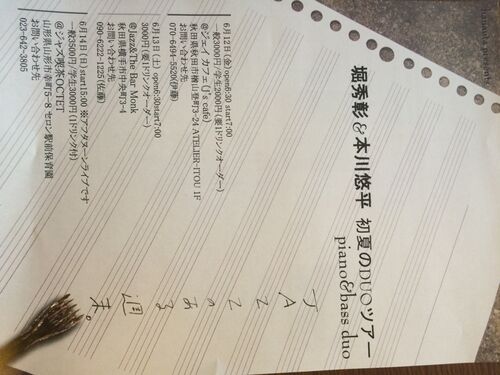 堀秀彰&本川悠平 初夏のDUOツアー
piano&bass duo
JAZZのある週末。
6月12日(金)open6:30 start7:00
一般3000円/学生2000円(要1ドリンクオーダー)
@ジェイ カフェ(J's cafe)
秋田県秋田市楢山本町3-24 ATELIER-ITOU 1F
お問い合わせ先
070-6494-5520(伊藤)
6月13日(土) open6:30start7:00
3000円(要1ドリンクオーダー)
@Jazz&The Bar Monk
秋田県横手市中央町3-4
お問い合わせ先
090-6251-1225(佐藤)
6月14日(日)start15:00 弦アフタヌーンライブです
一般3500円/学生3000円(1ドリンク付)
@ジャズ喫茶OCTET
山形県山形市幸町5-8 セロン駅前保育園
お問い合わせ先
023-642-3805